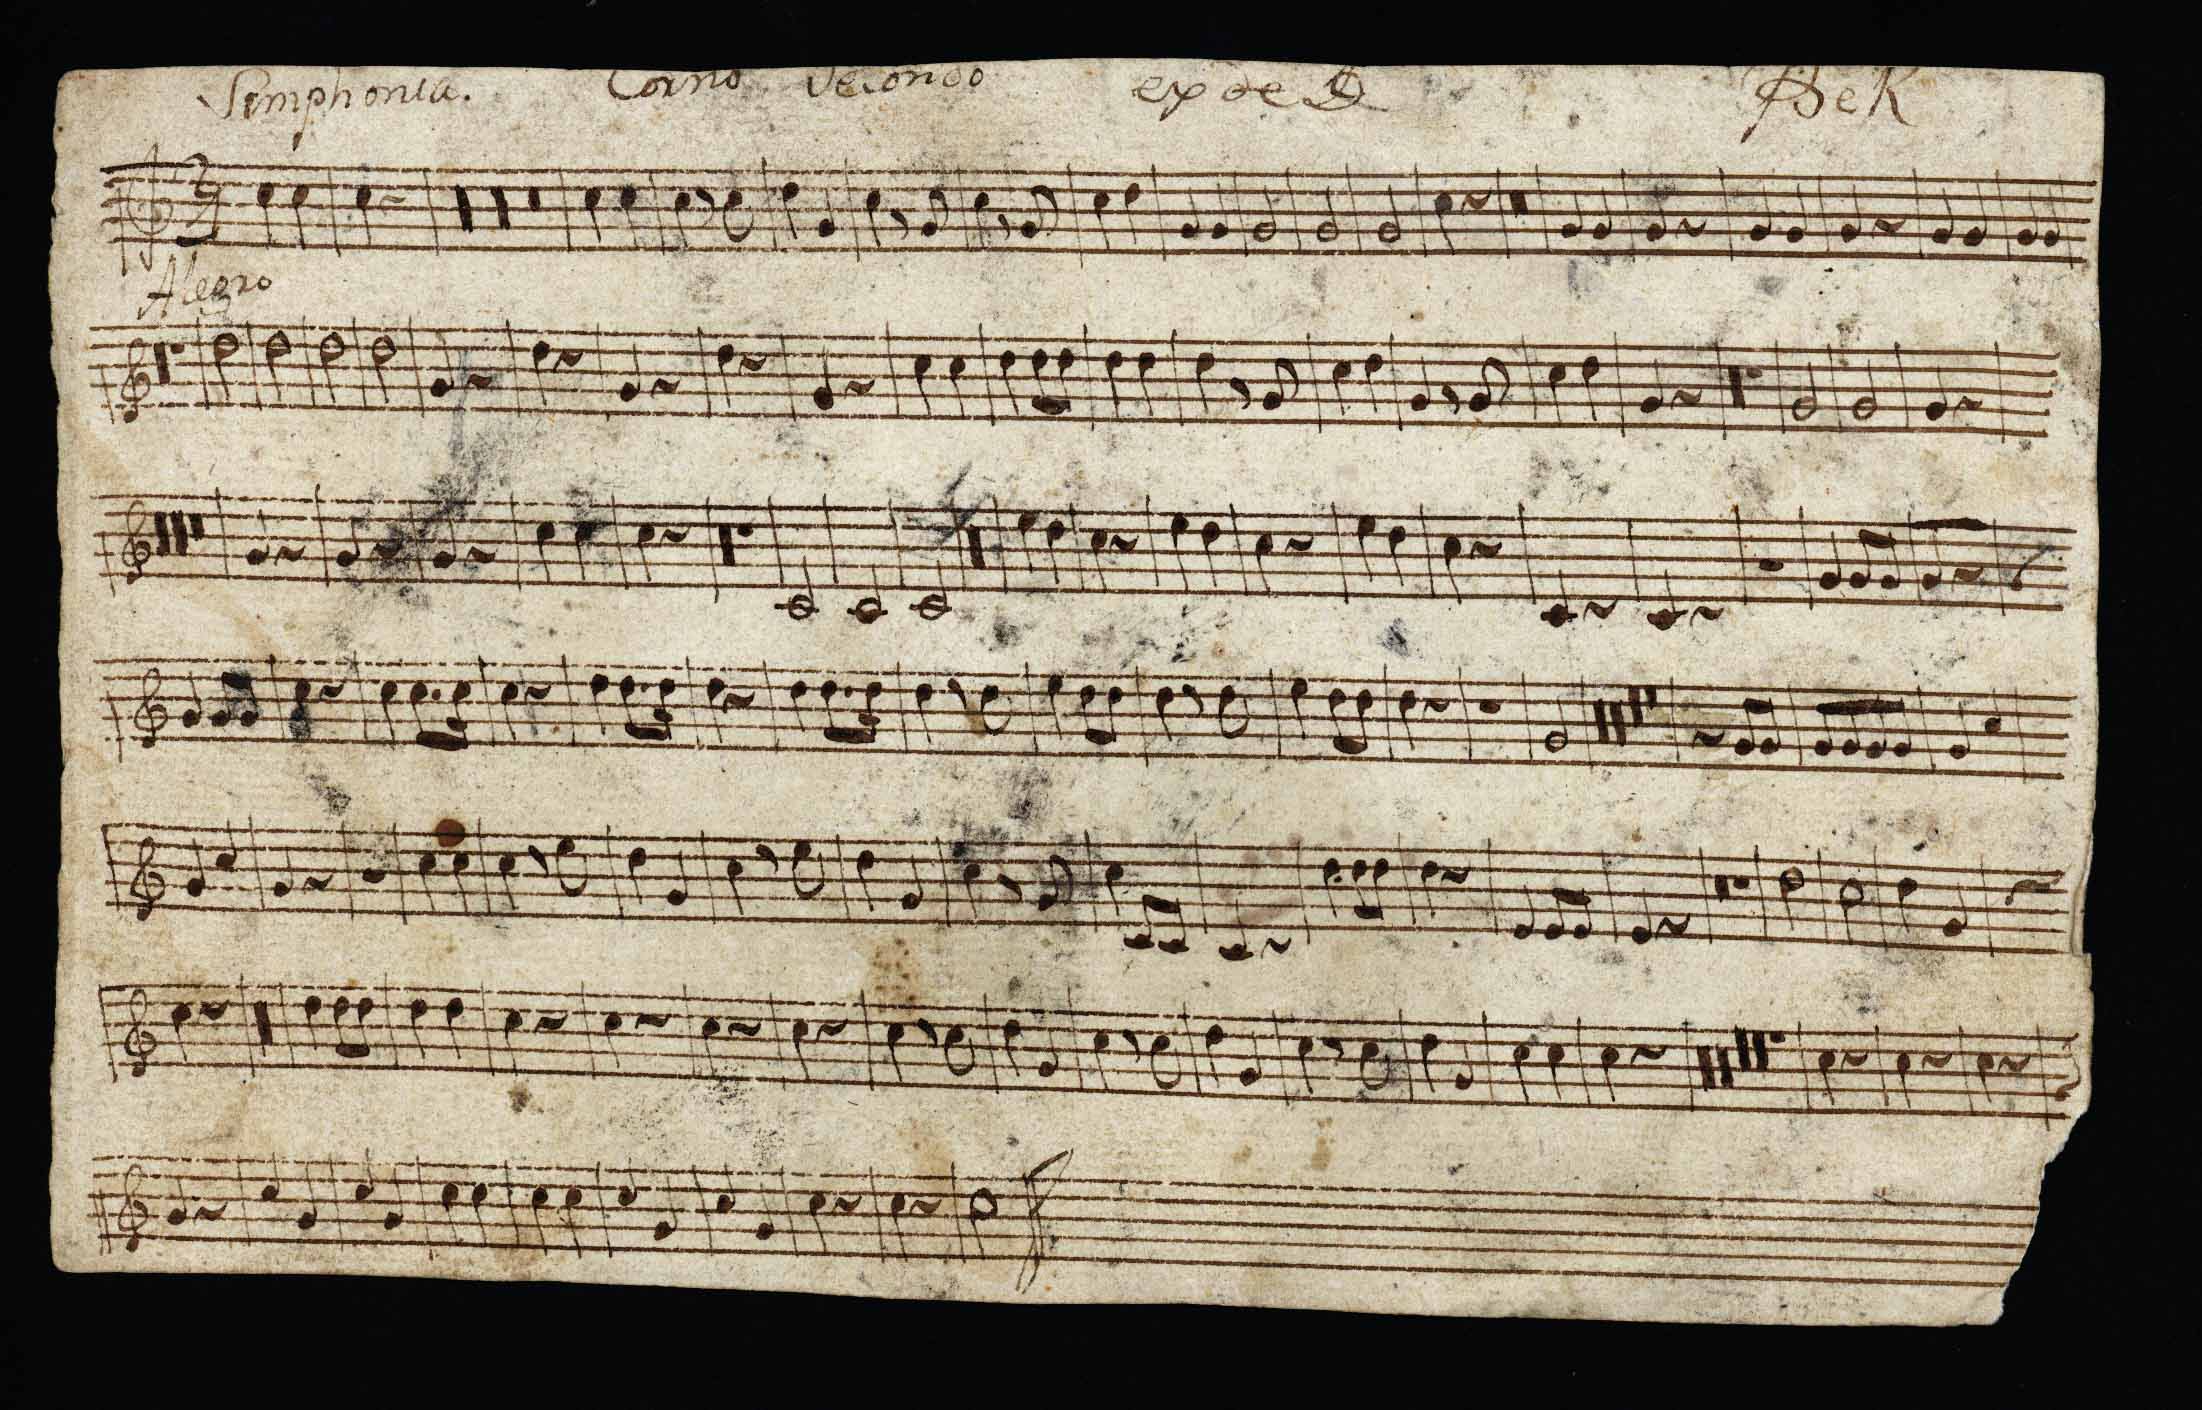 Simphonia. Corno Secondo ex de D
Alegro